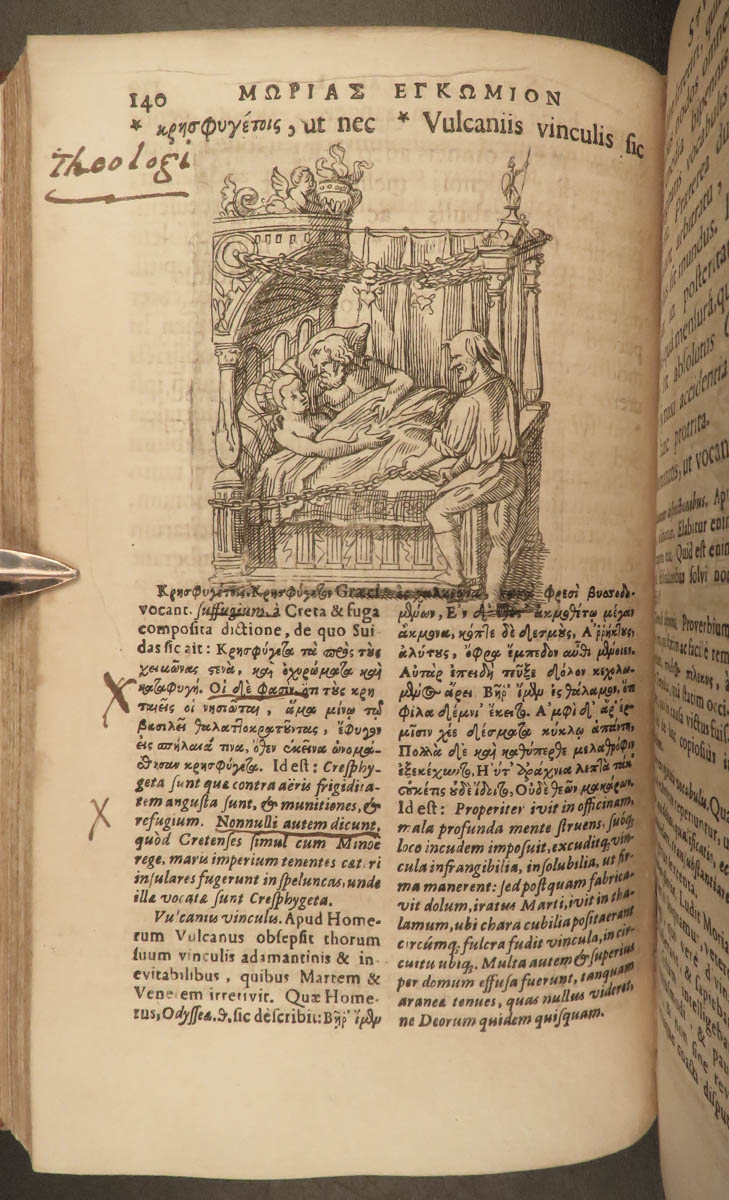 140
ΜΩΡΙΑΣ ΕΓΚΩΜΙΟΝ
* κρησφυγέτοις, ut nec * Vulcaniis vinculis sic
Theologi
Κρησφυγέτοις. Κρησφύγετον Græci
vocant suffugium, à Creta & fuga
composita dictione, de quo Sui
das sic ait: Κρησφύγετα τὰ πρὸς τοὺς
χειμῶνας στενὰ, καὶ ὀχυρώματα καὶ
καταφυγή. Οἱ δὲ φασὶν, ὅτι τοὺς κρη
ταιεῖς οἱ νησιῶται, ἅμα μίνω τῷ
βασιλεῖ θαλατιοκρατοῦντας, ἔφυγον
εἰς σπήλαιά τινα, ὅθεν ἐκεῖνα ὠνομά-
σθησαν κρησφύγετα. Id est: Cresphy-
geta sunt quæ contra aëris frigidita-
tem angusta sunt, & munitiones, &
refugium. Nonnulli autem dicunt,
quòd Cretenses simul cum Minoe
rege, maris imperium tenentes cæteri
insulares fugerunt in speluncas, unde
illæ vocatæ sunt Cresphygeta.
Vulcaniis vinculis. Apud Home-
rum Vulcanus obsepsit thorum
suum vinculis adamantinis & in-
evitabilibus, quibus Martem &
Venerem irretivit. Quæ Home-
rus, Odysseæ. θ. sic describit: Βῆῥ' ἴμεν
ἐς χαλκεῶνα, κακὰ φρεσὶ βυσσοδο-
μεύων, Ἐν δ' ἔθετ' ἀκμοθέτῳ μέγαν
ἄκμονα, κόπτε δὲ δεσμοὺς, Ἀῤῥήκτους,
ἀλύτους, ὄφρα ἔμπεδον αὖθι μένοιεν.
Αὐτὰρ ἐπειδὴ τεῦξε δόλον κεχολω-
μένος ἄρει. Βῆῥ' ἴμεν ἐς θάλαμον, ὅθι
φίλα δέμνι' ἔκειτο. Ἀμφὶ δ' ἄρ' ἑρ-
μῖσιν χέε δέσματα κύκλῳ ἁπάντῃ,
Πολλὰ δὲ καὶ καθύπερθε μελαθρόφιν
ἐξεκέχυντο, Ἠΰτ' ἀράχνια λεπτὰ τά κ'
οὔκέ τις οὐδὲ ἴδοιτο, Οὐδὲ θεῶν μακάρων.
Id est: Properiter ivit in officinam,
mala profunda mente struens, suóq;
loco incudem imposuit, excuditq; vin-
cula infrangibilia, insolubilia, ut fir-
ma manerent: sed postquam fabrica-
vit dolum, iratus Marti, ivit in tha-
lamum, ubi chara cubilia posita erant
circúmq; fulcra fudit vincula, in cir-
cuitu ubiq;. Multa autem & superius
per domum effusa fuerunt, tanquam
araneæ tenues, quas nullus videret,
ne Deorum quidem quisquam.